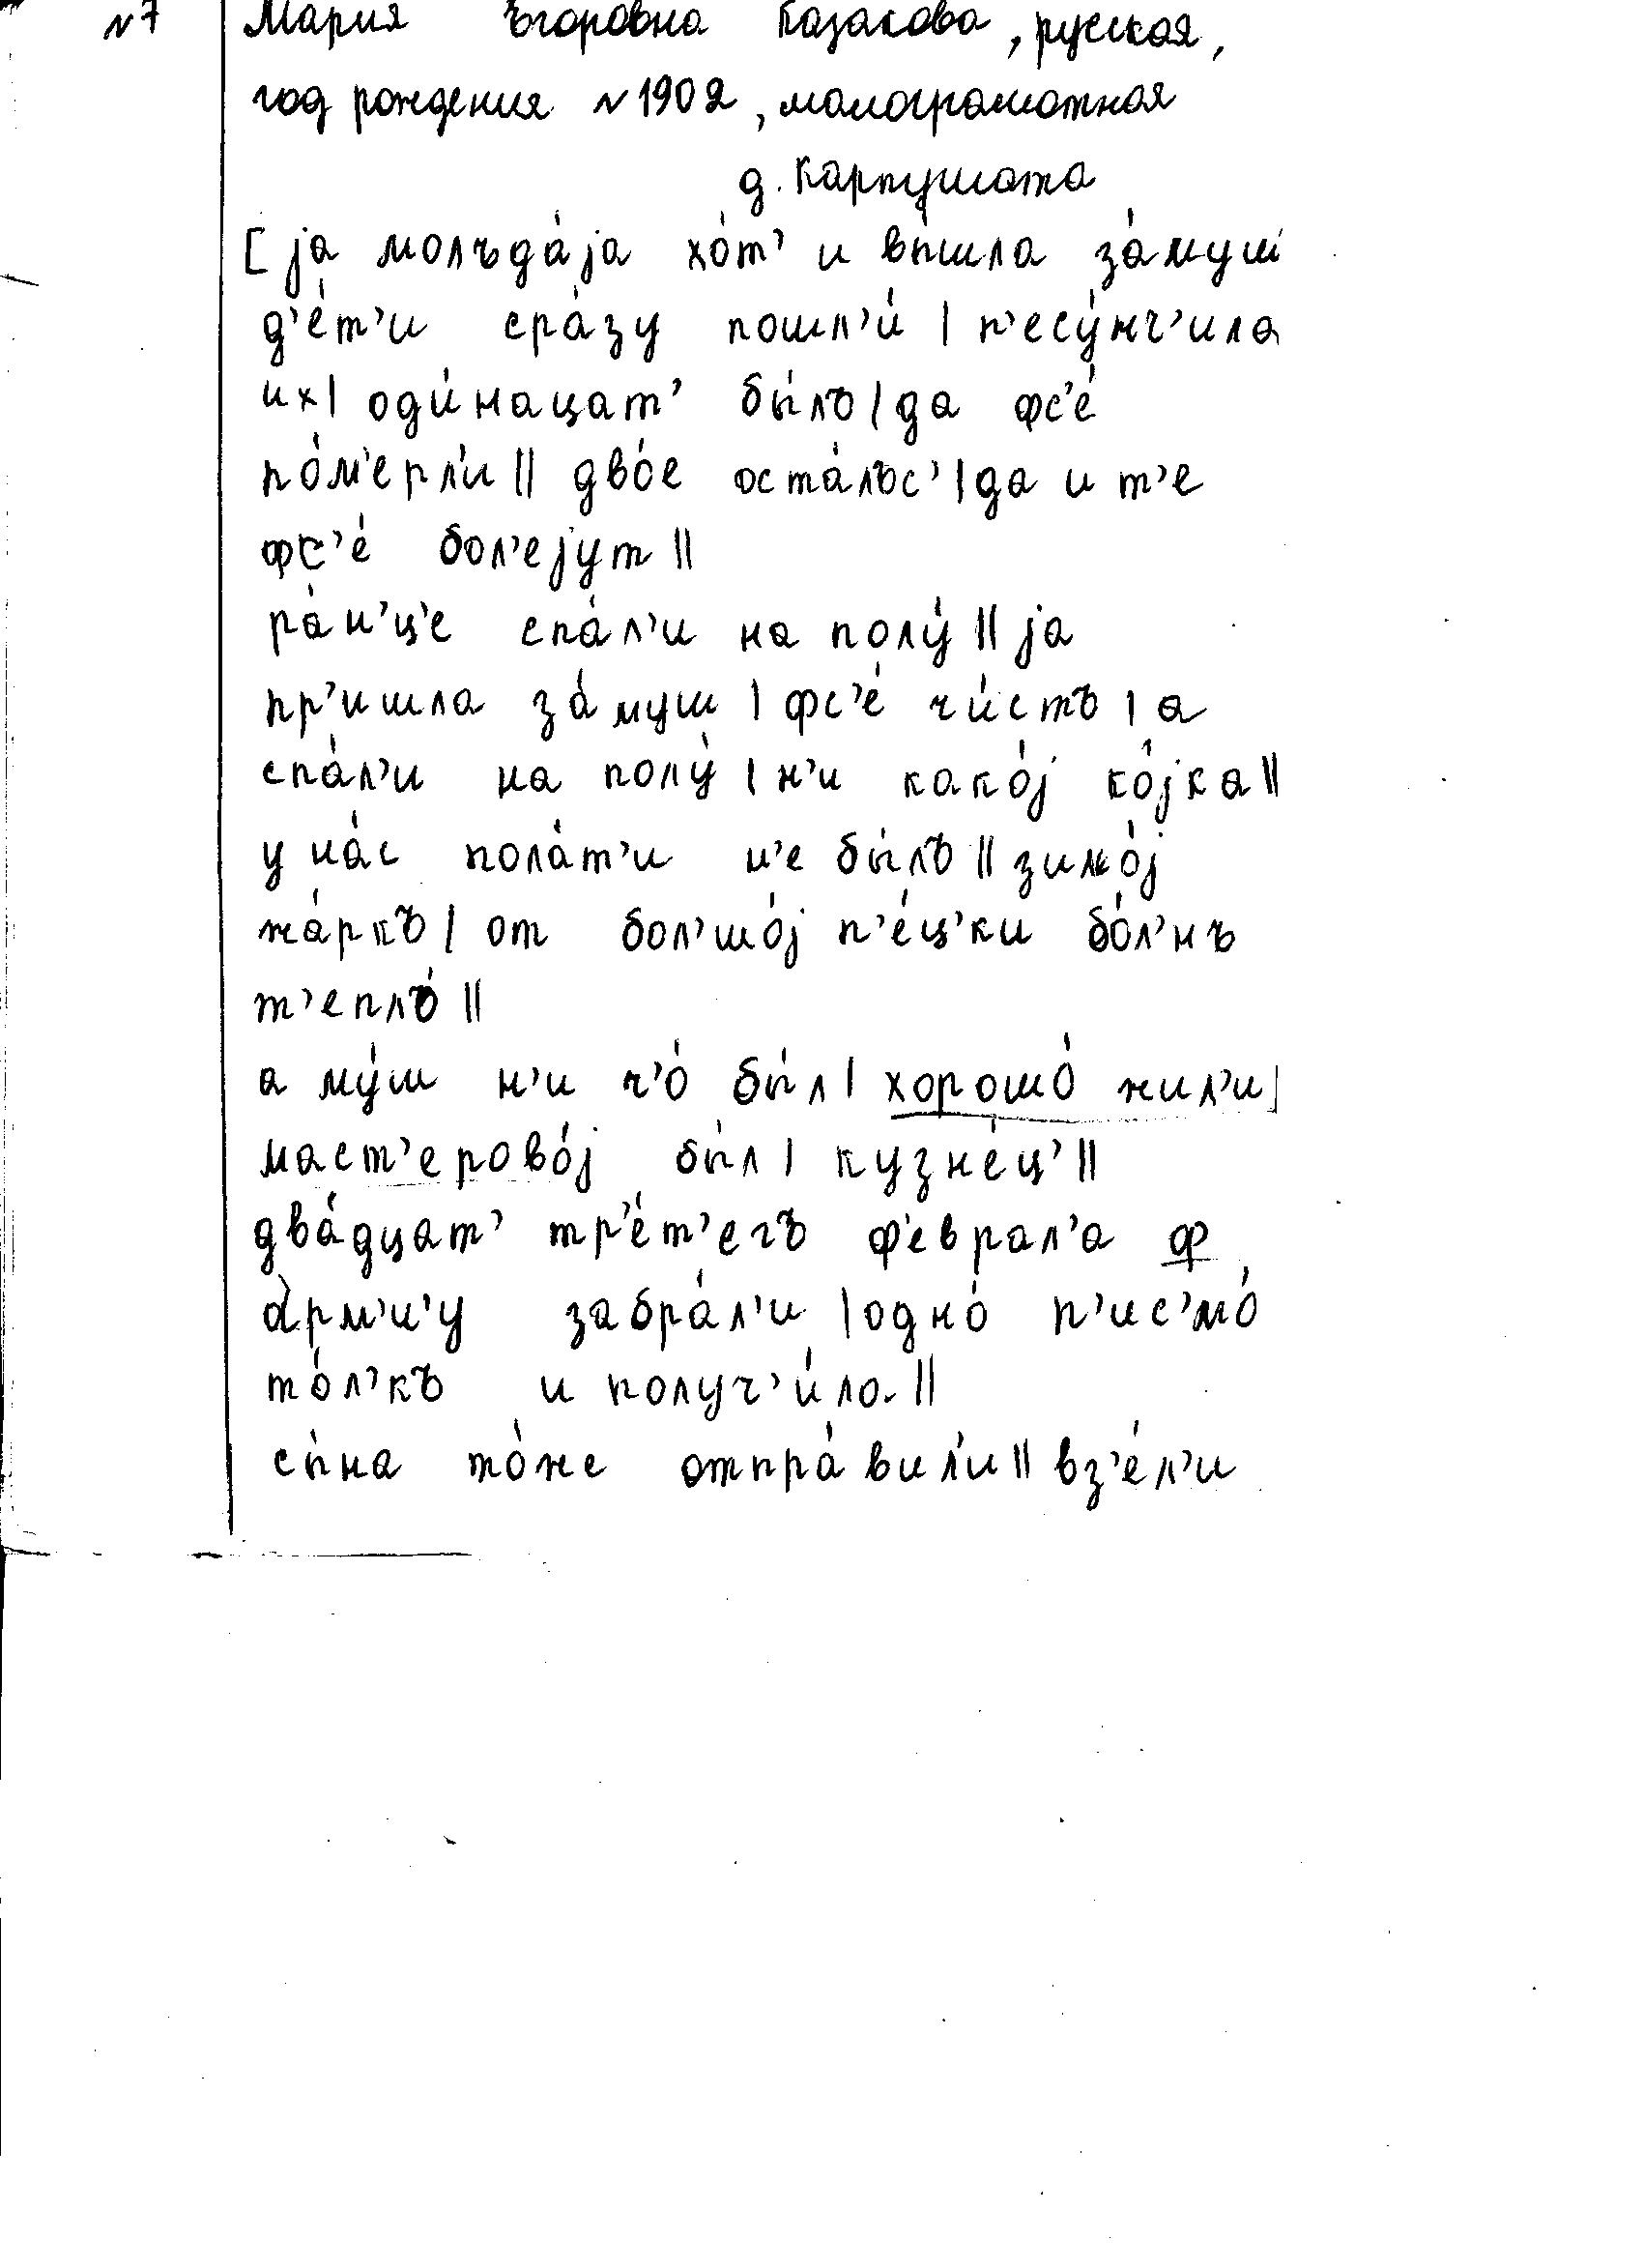 №7 Мария Егоровна Казакова, русская,
год рождения №1902, малограмотная
д. Карпушата
[jа́ молъда́jа хо́т' и вы́шла за́муш
д'е́т'и сра́зу пошл'и́ | п'есу́нч'ила
их | оди́нацат' бы́лъ | да фс'е́
по́м'ерл'и || дво́е оста́лъс' | да и т'е
фс'е́ бол'еjут ||
ра́н'ц'е спа́л'и на полу́ || jа
пр'ишла за́муш | фс'е́ чи́стъ | а
спа́л'и на полу́ | н'и како́j ко́jка ||
у на́с пола́т'и н'е бы́лъ || зимо́j
жа́ркъ | от бол'шо́j п'е́ц'ки бо́л'нъ
т'еплъ́ ||
а му́ш н'и ч'о́ бы́л | хорошо́ жил'и |
маст'ерово́j бы́л | кузне́ц' ||
два́дцат' тр'е́т'егъ ф'еврал'а ф
а́рм'и'у забра́л'и | одно́ п'ис'мо́
то́л'къ и получ'и́ла ||
сы́на то́же отпра́вил'и || вз'е́л'и